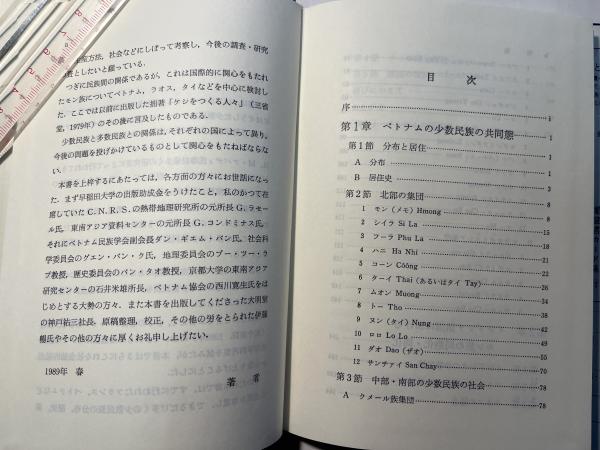 生産方法，社会などにしぼって考察し，今後の調査・研究
としたいと願っている．
つぎに民族間の関係であるが，これは国際的に関心をもたれ
たモン族についてベトナム，ラオス，タイなどを中心に検討し
た．ここでは以前に出版した拙著『ケシをつくる人々』（三省
堂，1979年）のその後に言及したものである．
少数民族と多数民族との関係は，それぞれの国によって異り，
今後の問題を投げかけているものとして関心をもたねばならな
い．
本書を上梓するにあたっては，各方面の方々にお世話になっ
た．まず早稲田大学の出版助成金をうけたこと，私のかつて在
席していたC.N.R.S.の熱帯地理研究所の元所長G.ラセー
ル氏，東南アジア資料センターの元所長G.コンドミナス氏，
それにベトナム民族学会副会長ダン・ギエム・バン氏，社会科
学委員会のグエン・バン・ク氏，地理委員会のブー・ツー・ラ
プ教授，歴史委員会のバン・タオ教授，京都大学の東南アジア
研究センターの石井米雄所長，ベトナム協会の西川寛生氏をは
じめとする大勢の方々，また本書を出版してくださった大明堂
の神戸祐三社長，原稿整理，校正，その他の労をとられた伊藤
氏やその他の方々に厚くお礼申し上げたい．
1989年 春
著 者
目 次
序 i
第1章 ベトナムの少数民族の共同態 1
第1節 分布と居住 1
A 分布 1
B 居住史 8
第2節 北部の集団 8
1 モン（メモ）Hmong 8
2 シイラ Si La 15
3 フーラ Phu La 18
4 ハニ Ha Nhi 21
5 コーン Côông 24
6 ターイ Thai（あるいはタイ Tay） 26
7 ムオン Muong 34
8 トー Tho 38
9 ヌン（タイ）Nung 42
10 ロロ Lo Lo 49
11 ダオ Dao（ザオ） 55
12 サンチァイ San Chay 70
第3節 中部・南部の少数民族の社会 78
A クメール族集団 78